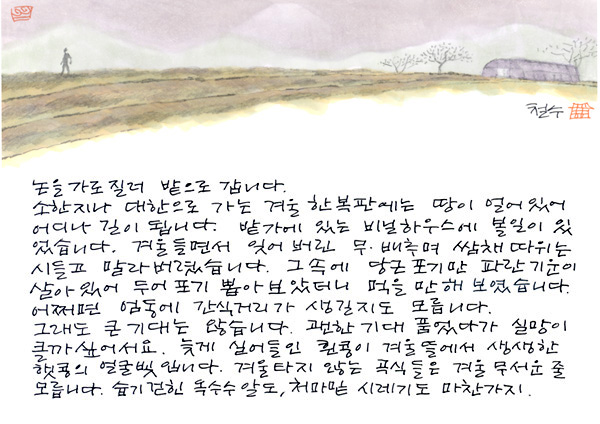 철수
논을 가로질러 밭으로 갑니다.
소한지나 대한으로 가는 겨울 한복판에는 땅이 얼어있어
어디나 길이 됩니다. 밭가에 있는 비닐하우스에 볼일이 있
었습니다. 겨울들면서 잊어버린 무·배추며 쌈채 따위는
시들고 말라버렸습니다. 그 속에 당근 포기만 파란 기운이
살아있어 두어 포기 뽑아 보았더니 먹을 만 해 보였습니다.
어쩌면 엄동에 간식거리가 생길지도 모릅니다.
그래도 큰 기대는 않습니다. 괜한 기대 품었다가 실망이
클까 싶어서요. 늦게 심어들인 흰콩이 겨울 뜰에서 생생한
햇콩의 얼굴빛입니다. 겨울타지 않는 곡식들은 겨울 무서운 줄
모릅니다. 습기 걷힌 옥수수 알도, 처마밑 시레기도 마찬가지.